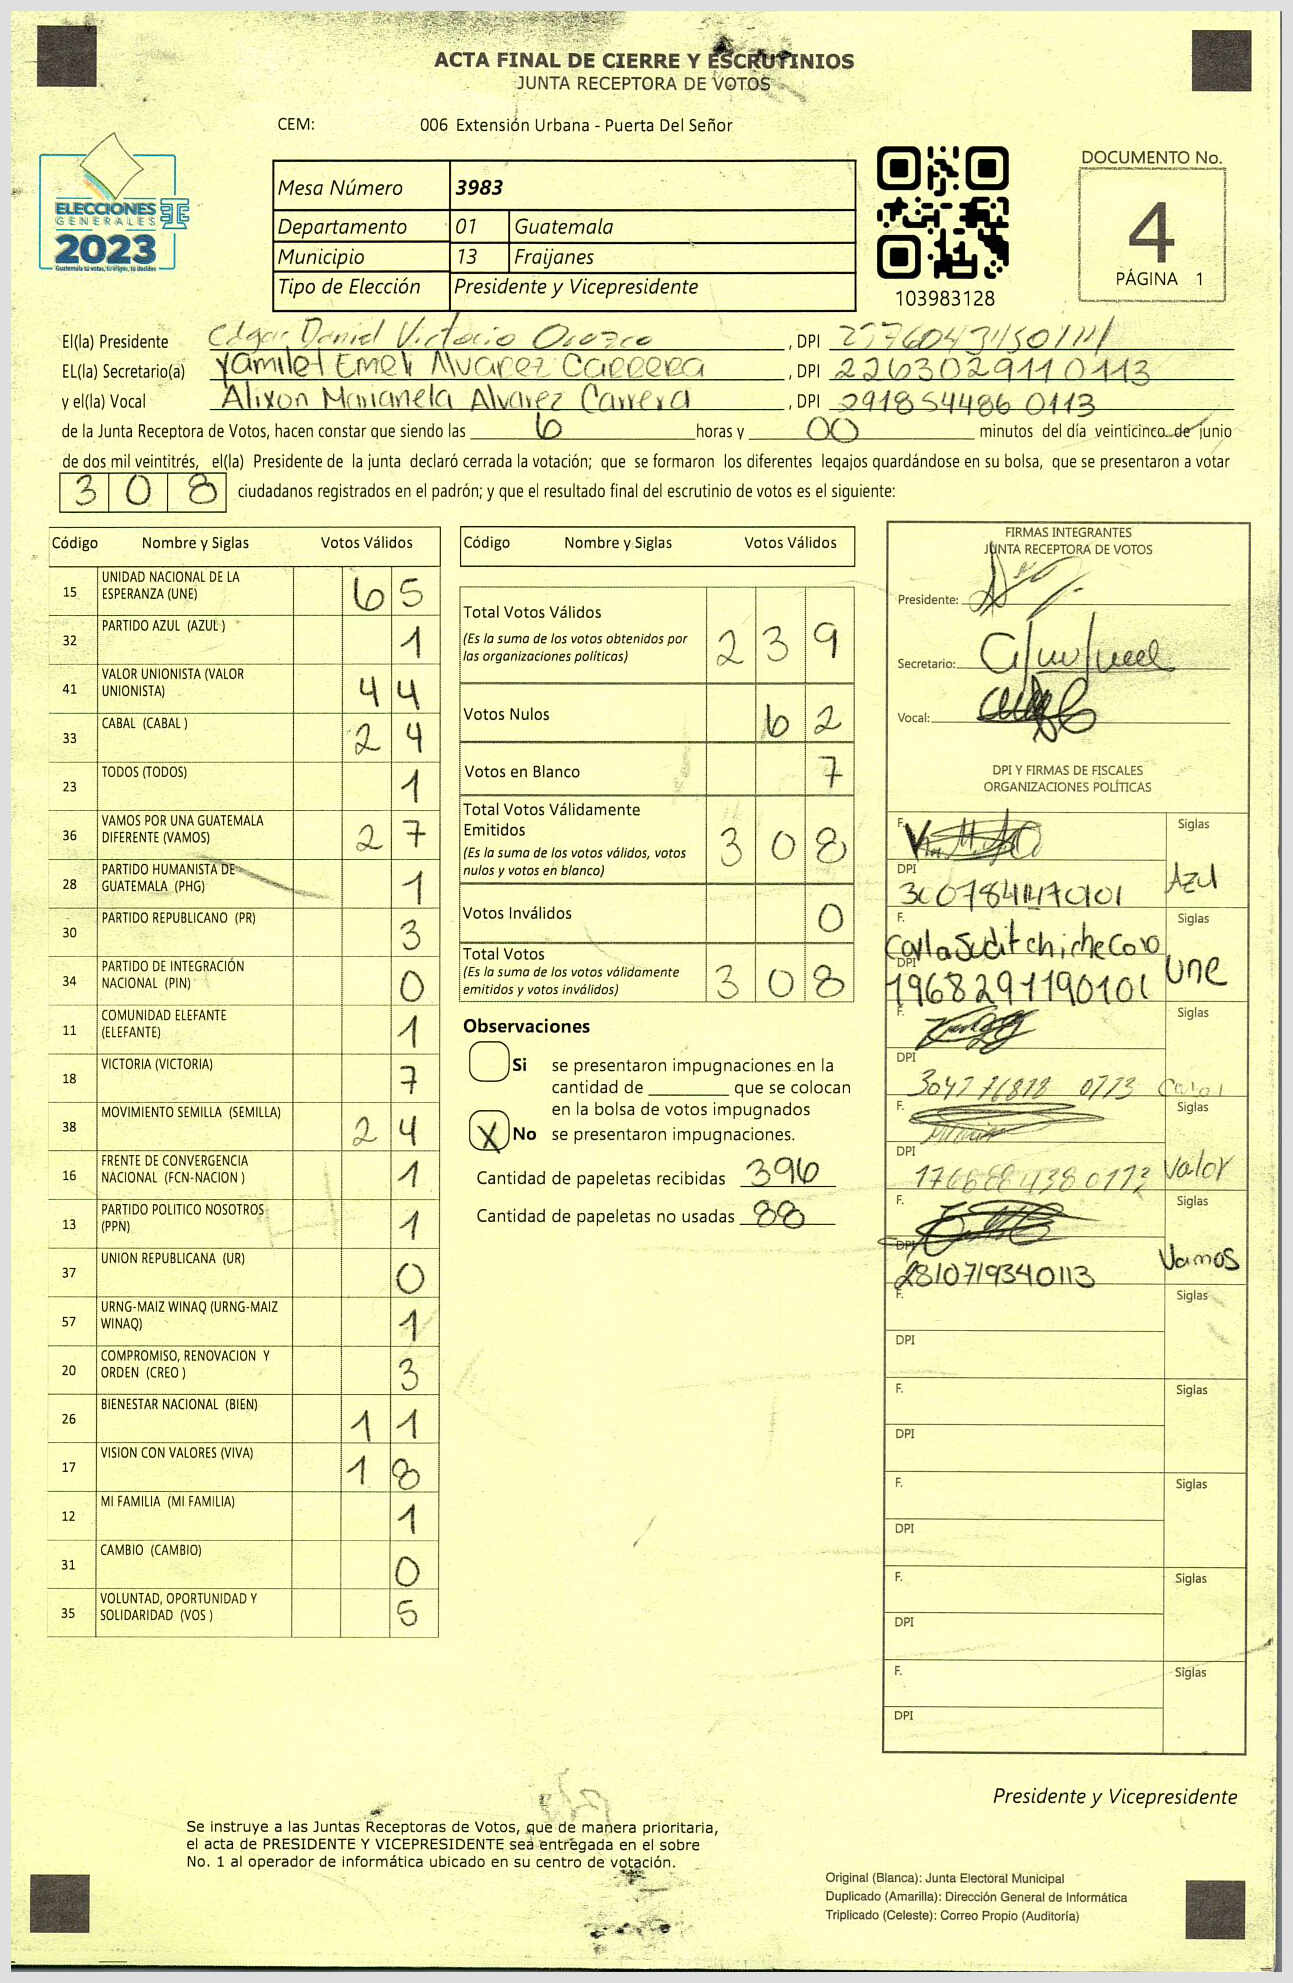 ACTA FINAL DE CIERRE Y ESCRUTINIOS
JUNTA RECEPTORA DE VOTOS
CEM: 006 Extensión Urbana - Puerta Del Señor
ELECCIONES
GENERALES
2023
Guatemala tu votas, tu eliges, tu decides
Mesa Número 3983
Departamento 01 Guatemala
Municipio 13 Fraijanes
Tipo de Elección Presidente y Vicepresidente
103983128
DOCUMENTO No.
4
PÁGINA 1
El(la) Presidente Edgar Daniel Victorio Orozco, DPI
EL(la) Secretario(a) Yamilet Emeli Alvarez Carrera, DPI 2263029110113
y el(la) Vocal Alixon Marianela Alvarez Carrera, DPI 291854486 0113
de la Junta Receptora de Votos, hacen constar que siendo las 6 horas y 00 minutos del día veinticinco de junio
de dos mil veintitrés, el(la) Presidente de la junta declaró cerrada la votación; que se formaron los diferentes legajos guardándose en su bolsa, que se presentaron a votar
308 ciudadanos registrados en el padrón; y que el resultado final del escrutinio de votos es el siguiente:
Código Nombre y Siglas Votos Válidos
15 UNIDAD NACIONAL DE LA ESPERANZA (UNE) 65
32 PARTIDO AZUL (AZUL ) 1
41 VALOR UNIONISTA (VALOR UNIONISTA) 44
33 CABAL (CABAL ) 24
23 TODOS (TODOS) 1
36 VAMOS POR UNA GUATEMALA DIFERENTE (VAMOS) 27
28 PARTIDO HUMANISTA DE GUATEMALA (PHG) 1
30 PARTIDO REPUBLICANO (PR) 3
34 PARTIDO DE INTEGRACIÓN NACIONAL (PIN) 0
11 COMUNIDAD ELEFANTE (ELEFANTE) 1
18 VICTORIA (VICTORIA) 7
38 MOVIMIENTO SEMILLA (SEMILLA) 24
16 FRENTE DE CONVERGENCIA NACIONAL (FCN-NACION ) 1
13 PARTIDO POLITICO NOSOTROS (PPN) 1
37 UNION REPUBLICANA (UR) 0
57 URNG-MAIZ WINAQ (URNG-MAIZ WINAQ) 1
20 COMPROMISO, RENOVACION Y ORDEN (CREO ) 3
26 BIENESTAR NACIONAL (BIEN) 11
17 VISION CON VALORES (VIVA) 18
12 MI FAMILIA (MI FAMILIA) 1
31 CAMBIO (CAMBIO) 0
35 VOLUNTAD, OPORTUNIDAD Y SOLIDARIDAD (VOS ) 5
Código Nombre y Siglas Votos Válidos
Total Votos Válidos 239
(Es la suma de los votos obtenidos por
las organizaciones políticas)
Votos Nulos 62
Votos en Blanco 7
Total Votos Válidamente
Emitidos 308
(Es la suma de los votos válidos, votos
nulos y votos en blanco)
Votos Inválidos 0
Total Votos 308
(Es la suma de los votos válidamente
emitidos y votos inválidos)
Observaciones
Si se presentaron impugnaciones en la
cantidad de ________ que se colocan
en la bolsa de votos impugnados
X No se presentaron impugnaciones.
Cantidad de papeletas recibidas 396
Cantidad de papeletas no usadas 88
FIRMAS INTEGRANTES
JUNTA RECEPTORA DE VOTOS
Presidente:
Secretario:
Vocal:
DPI Y FIRMAS DE FISCALES
ORGANIZACIONES POLÍTICAS
F. Siglas
DPI Azul
F. Siglas
DPI 1968291190101 UNE
F. Siglas
DPI
F. Siglas
DPI Valor
F. Siglas
DPI 2810719340113 Vamos
F. Siglas
DPI
F. Siglas
DPI
F. Siglas
DPI
F. Siglas
DPI
F. Siglas
DPI
Presidente y Vicepresidente
Se instruye a las Juntas Receptoras de Votos, que de manera prioritaria,
el acta de PRESIDENTE Y VICEPRESIDENTE sea entregada en el sobre
No. 1 al operador de informática ubicado en su centro de votación.
Original (Blanca): Junta Electoral Municipal
Duplicado (Amarilla): Dirección General de Informática
Triplicado (Celeste): Correo Propio (Auditoría)